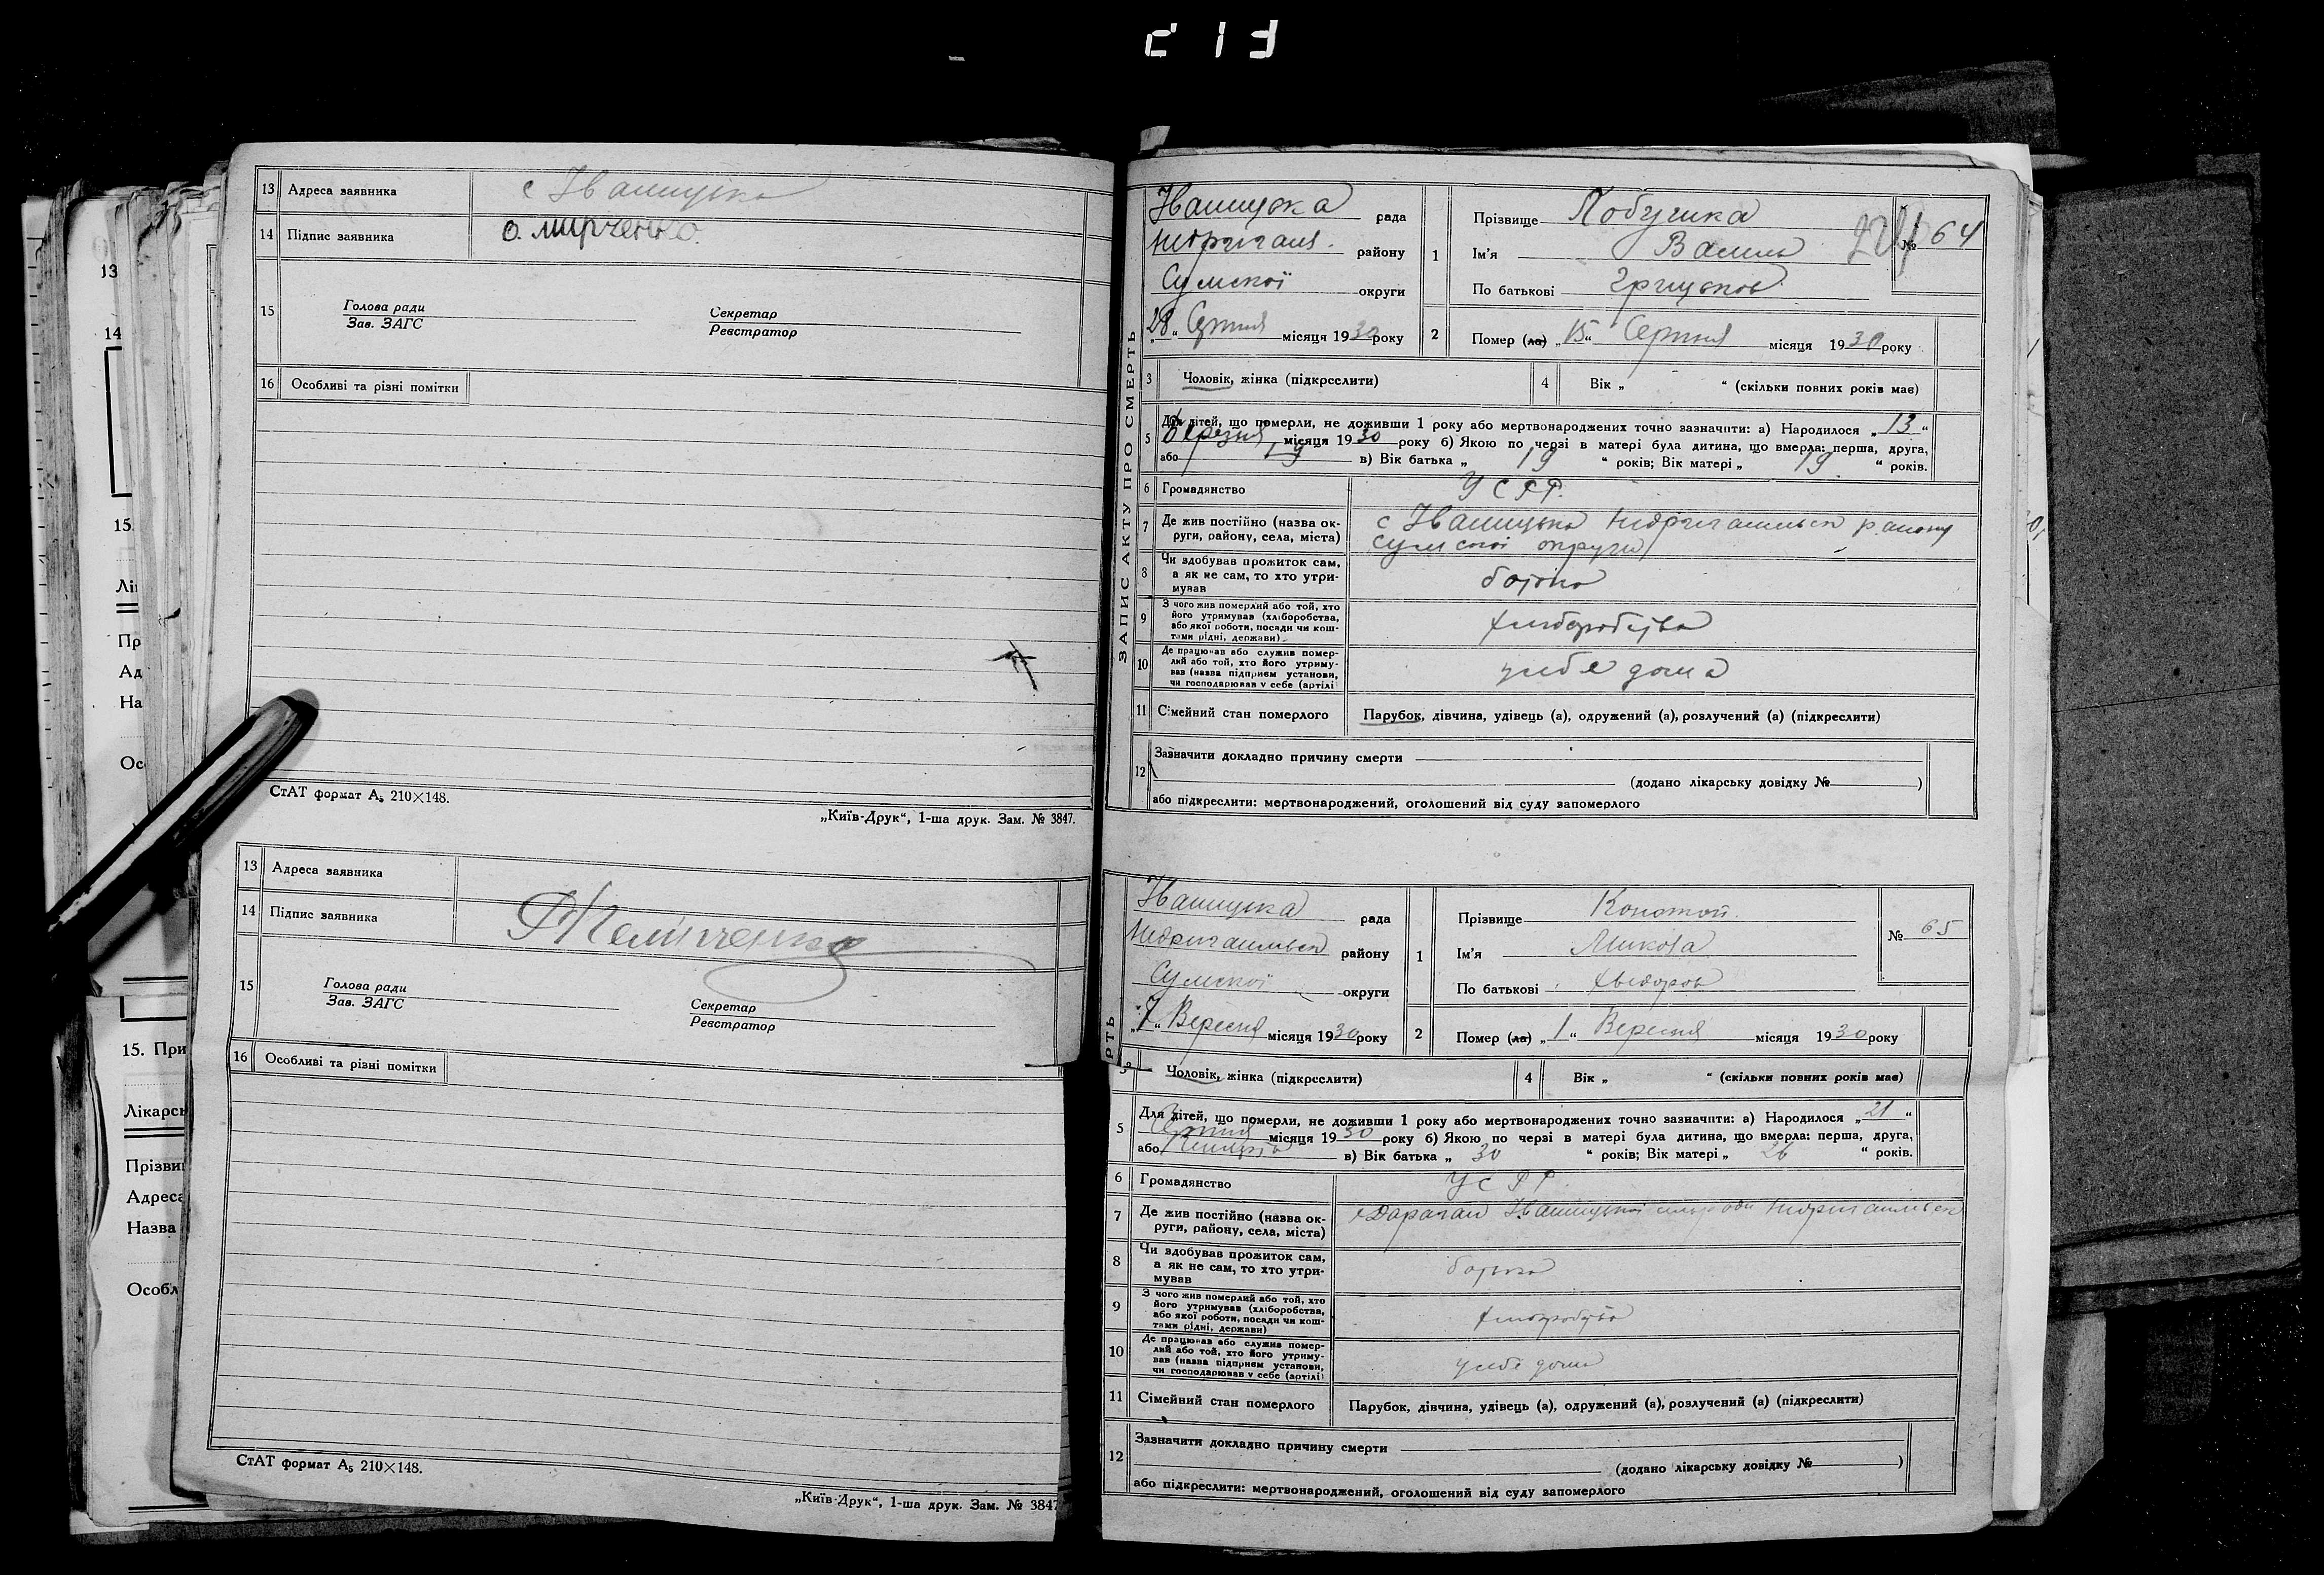 213
13 Адреса заявника с Іваницька
14 Підпис заявника О. Марченко.
15 Голова ради
Зав. ЗАГС
Секретар
Реєстратор
16 Особливі та різні помітки
СтАТ формат А₅ 210×148.
„Київ-Друк“, 1-ша друк. Зам. № 3847.
13 Адреса заявника
14 Підпис заявника
15 Голова ради
Зав. ЗАГС
Секретар
Реєстратор
16 Особливі та різні помітки
СтАТ формат А₅ 210×148.
„Київ-Друк“, 1-ша друк. Зам. № 3847
13
14
15.
Лі
Пр
Ад
На
Ос
15. При
Лікарсь
Прізви
Адреса
Назва
Особл
ЗАПИС АКТУ ПРО СМЕРТЬ
Іваницька рада
району
Сумської округи
„28“ Серпня місяця 1930 року
1 Прізвище
Ім'я Василь
По батькові Грицьков
№ 64
2 Помер (ла) „15“ Серпня місяця 1930 року
3 Чоловік, жінка (підкреслити)
4 Вік „ “ (скільки повних років має)
5 Для дітей, що померли, не доживши 1 року або мертвонароджених точно зазначити: а) Народилося „13“
березня місяця 1930 року б) Якою по черзі в матері була дитина, що вмерла: перша, друга,
або в) Вік батька „ 19 “ років; Вік матері „ 19 “ років.
6 Громадянство УСРР.
7 Де жив постійно (назва округи, району, села, міста) с Іваницька Недригайлівськ району
Сумської округи
8 Чи здобував прожиток сам, а як не сам, то хто утримував батько
9 З чого жив померлий або той, хто його утримував (хліборобства, або якої роботи, посади чи коштами рідні, держави) хліборобства
10 Де працював або служив померлий або той, хто його утримував (назва підприєм установи, чи господарював у себе (артілі) у себе дома
11 Сімейний стан померлого Парубок, дівчина, удівець (а), одружений (а), розлучений (а) (підкреслити)
12 Зазначити докладно причину смерти
(додано лікарську довідку № )
або підкреслити: мертвонароджений, оголошений від суду запомерлого
РТЬ
Іваницька рада
Недригайлівськ району
Сумської округи
„7“ Вересня місяця 1930 року
1 Прізвище Конотоп.
Ім'я Микола
По батькові Хведоров
№ 65
2 Помер (ла) „1“ Вересня місяця 1930 року
3 Чоловік, жінка (підкреслити)
4 Вік „ “ (скільки повних років має)
5 Для дітей, що померли, не доживши 1 року або мертвонароджених точно зазначити: а) Народилося „21“
Серпня місяця 1930 року б) Якою по черзі в матері була дитина, що вмерла: перша, друга,
або в) Вік батька „ 30 “ років; Вік матері „ 26 “ років.
6 Громадянство УСРР.
7 Де жив постійно (назва округи, району, села, міста) Іваницької сільради Недригайлівськ
8 Чи здобував прожиток сам, а як не сам, то хто утримував батько
9 З чого жив померлий або той, хто його утримував (хліборобства, або якої роботи, посади чи коштами рідні, держави) хліборобства
10 Де працював або служив померлий або той, хто його утримував (назва підприєм установи, чи господарював у себе (артілі) у себе дома
11 Сімейний стан померлого Парубок, дівчина, удівець (а), одружений (а), розлучений (а) (підкреслити)
12 Зазначити докладно причину смерти
(додано лікарську довідку № )
або підкреслити: мертвонароджений, оголошений від суду запомерлого